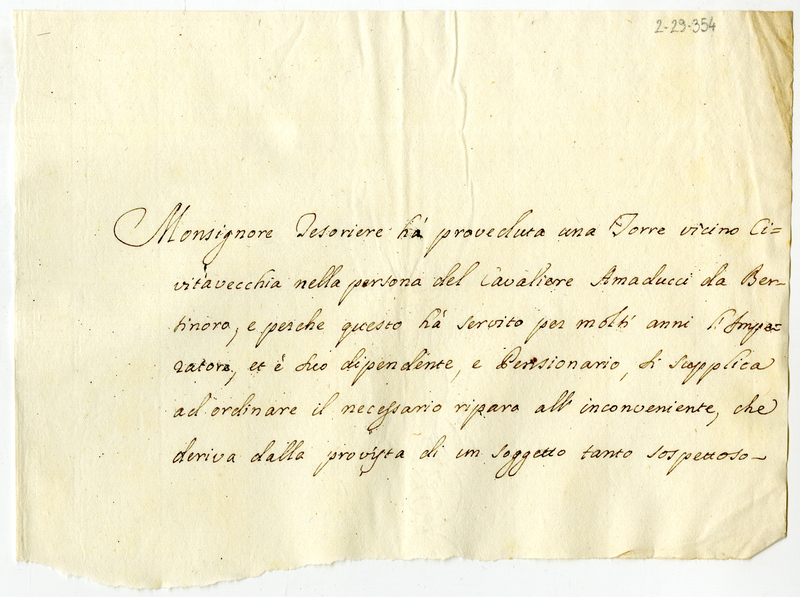 2-29-354
Monsignore Tesoriere há proveduta una Torre vicino Ci=
vitavecchia nella persona del Cavaliere Amaducci da Ber=
tinoro, e perche questo há servito per molti anni l'Impe=
ratore, et è suo dipendente, e Pensionario, si supplica
ad ordinare il necessario riparo all' inconveniente, che
deriva dalla provista di un soggetto tanto sospettoso-